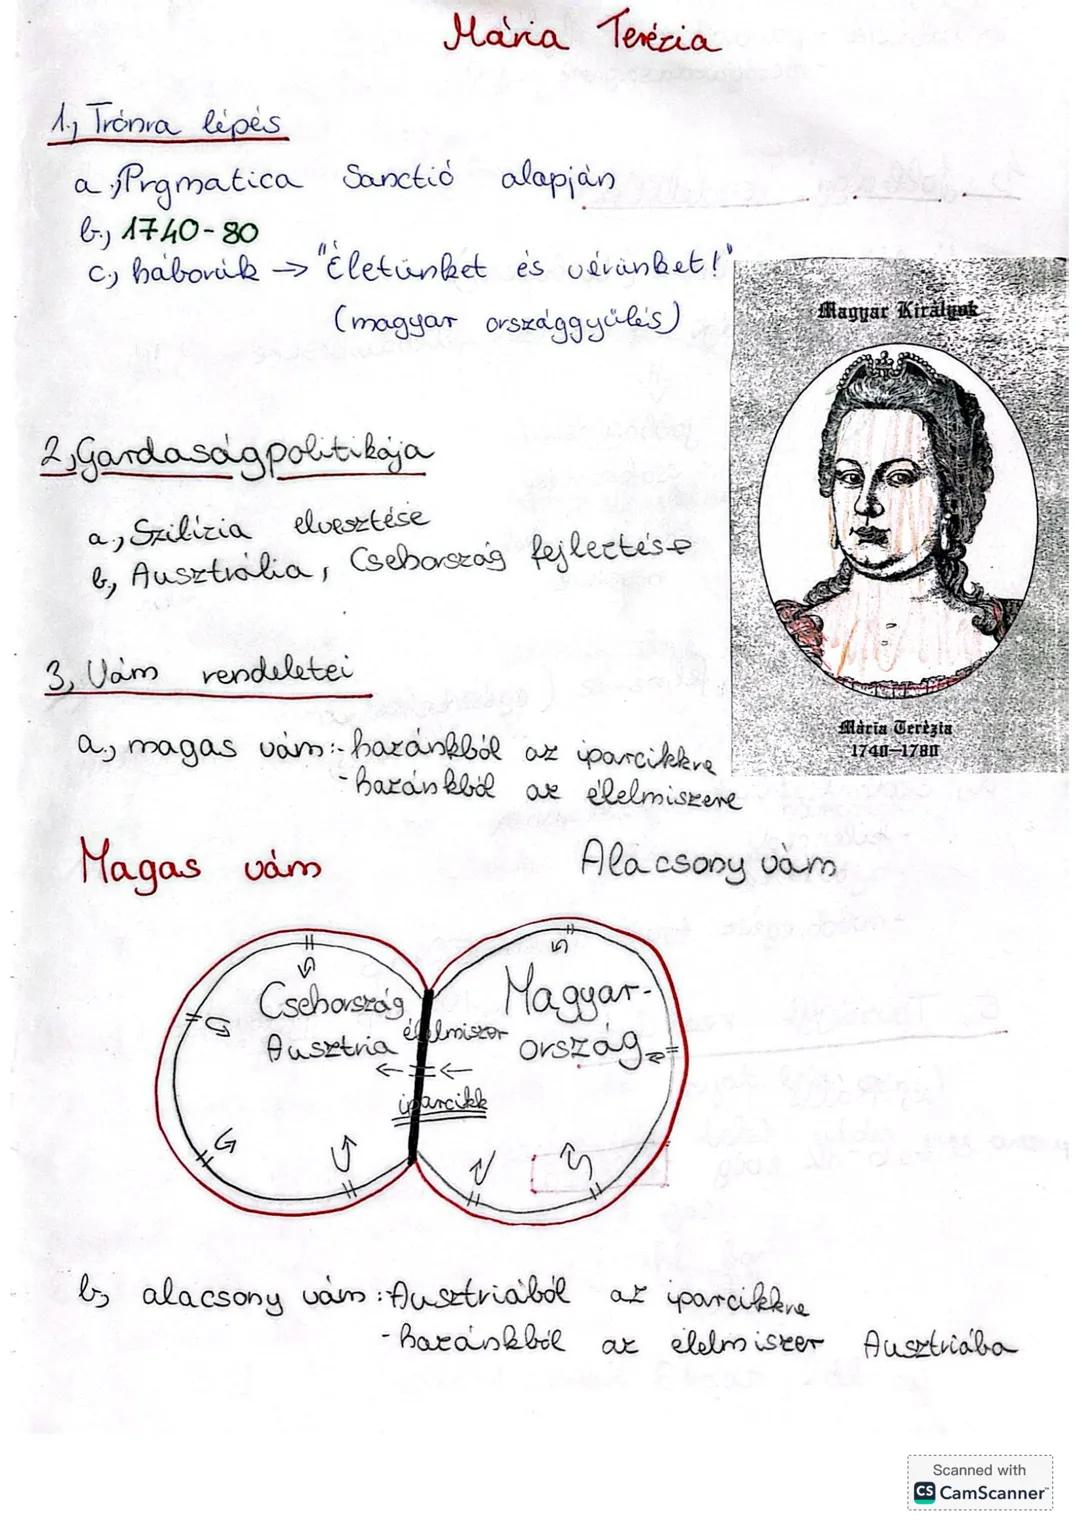 Mária Terézia
1., Trónra lépés
a., Prgmatica Sanctió alapján
b., 1740-80
c., háborúk → "Életünket és vérünket!"
(magyar országgyűlés)
Magyar Királyok
2, Gardaságpolitikája
a., Szilízia elvesztése
b, Ausztrália, Csehország fejleztése
3, Vám rendeletei
Mária Terézia
1740–1780
a., magas vám:- hazánkból az iparcikkre
- hazánkból az élelmiszere
Magas vám
Alacsony vám
Csehország
Ausztria
élelmiszer
iparcikk
Magyar-
ország
b, alacsony vám: Ausztriából az iparcikkre
- hazánkból az élelmiszer Ausztriába
Scanned with
CS CamScanner